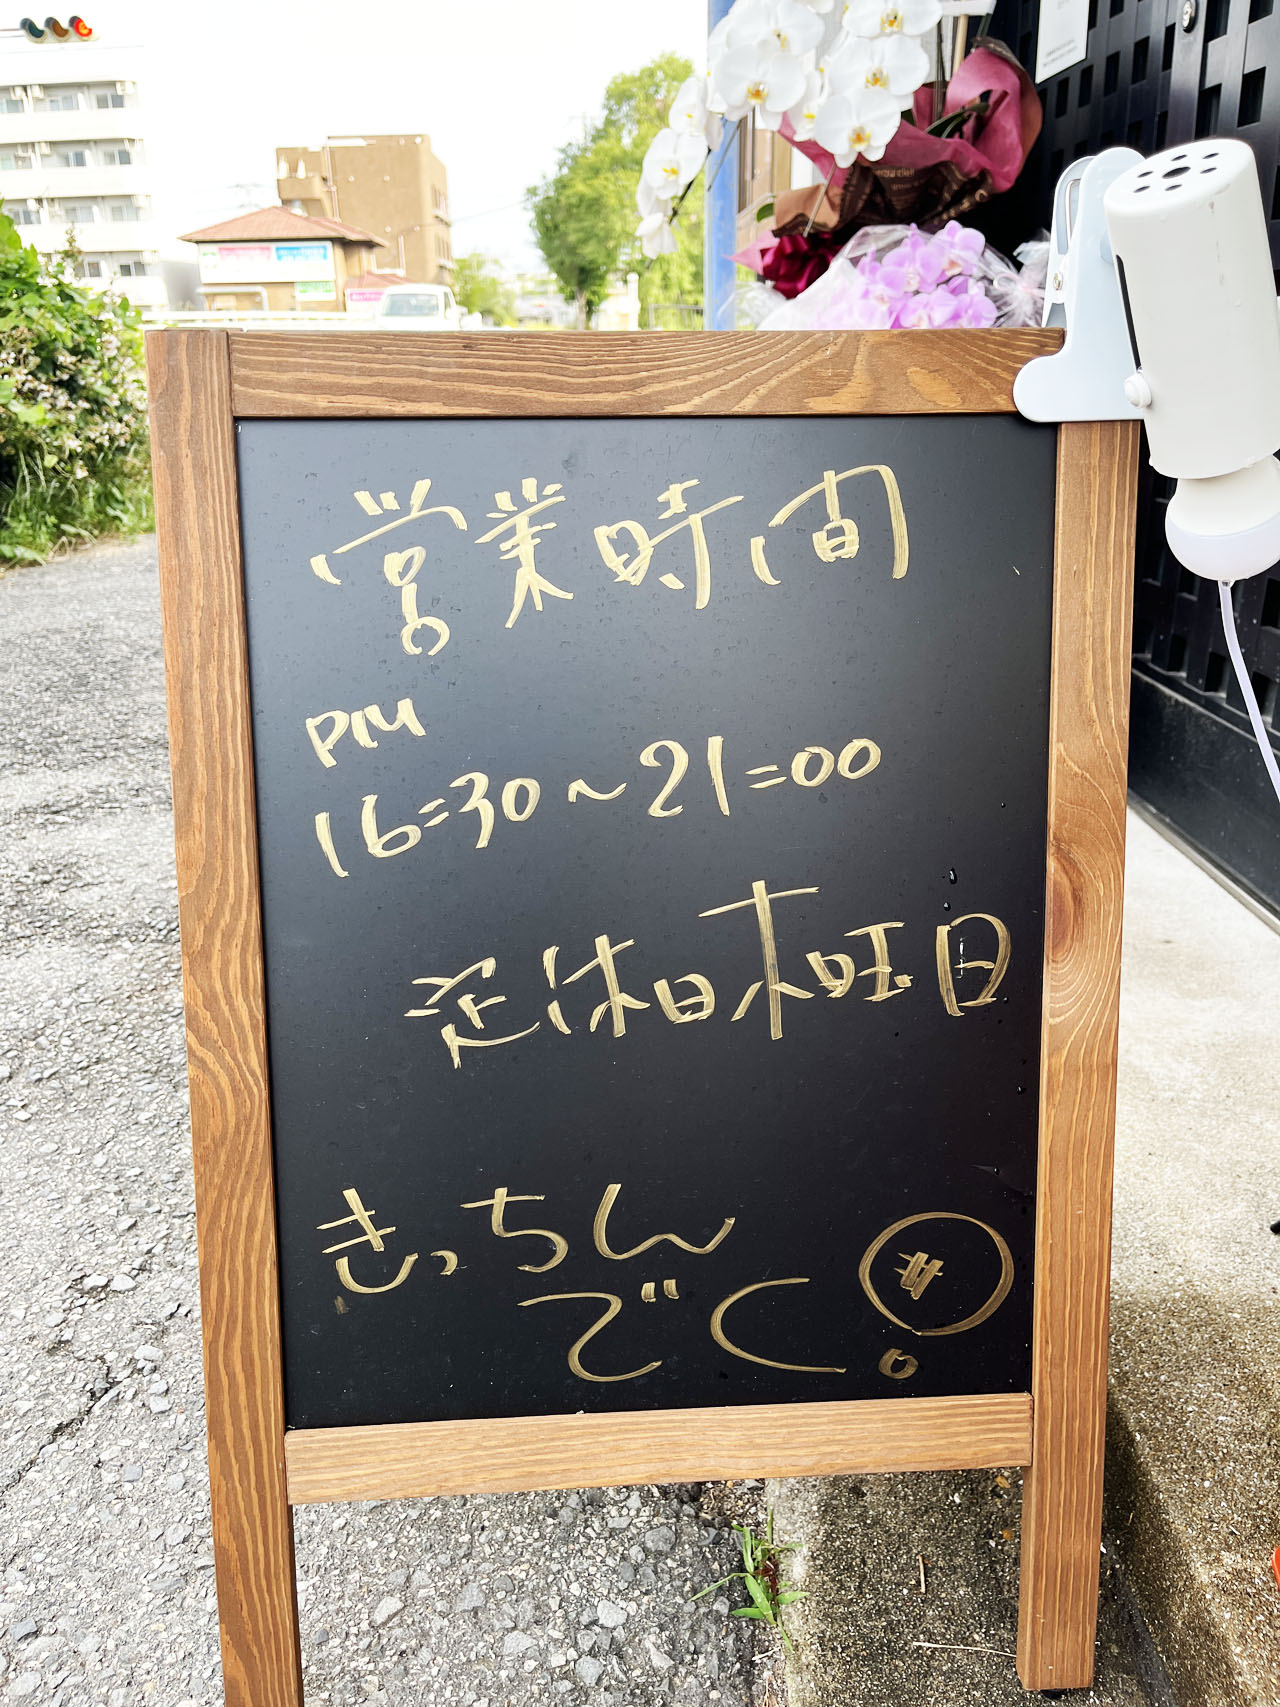 営業時間
PM
16:30〜21:00
定休日木曜日
きっちん
でく。